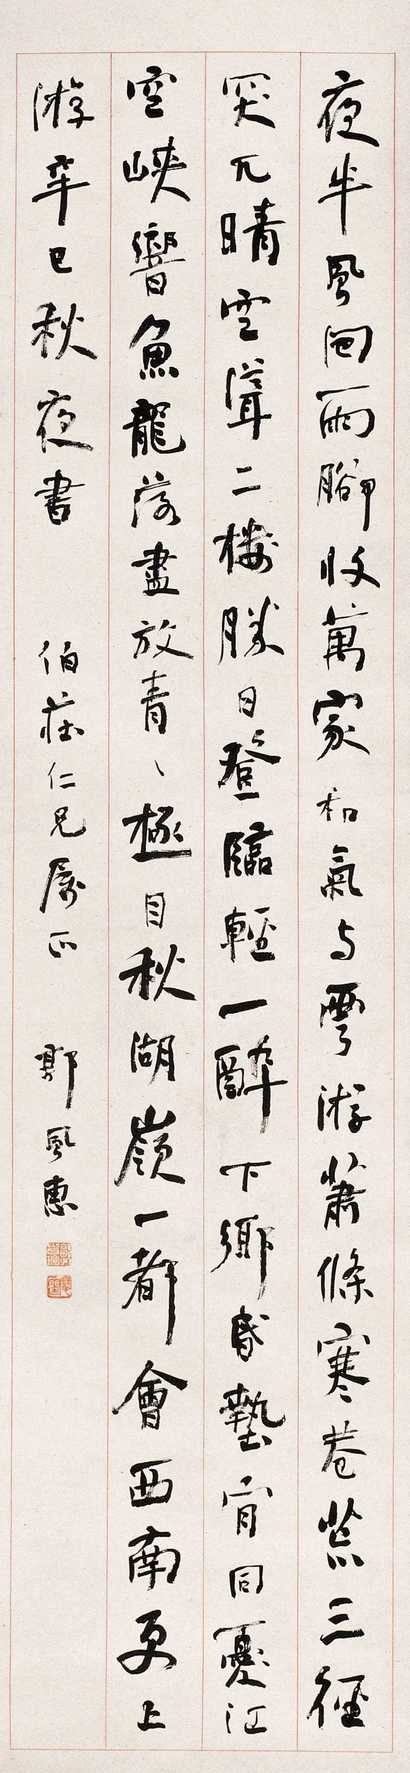 夜半風回雨腳收萬家和氣与雲游蕭條寒巷荒三徑
突兀晴空聳二樓勝日登臨輕一醉下鄉昏墊肯同憂江
空峽響魚龍落盡放青、極目秋湖嶺一都會西南更上
游辛巳秋夜書 伯莊仁兄屬正 郭風惠